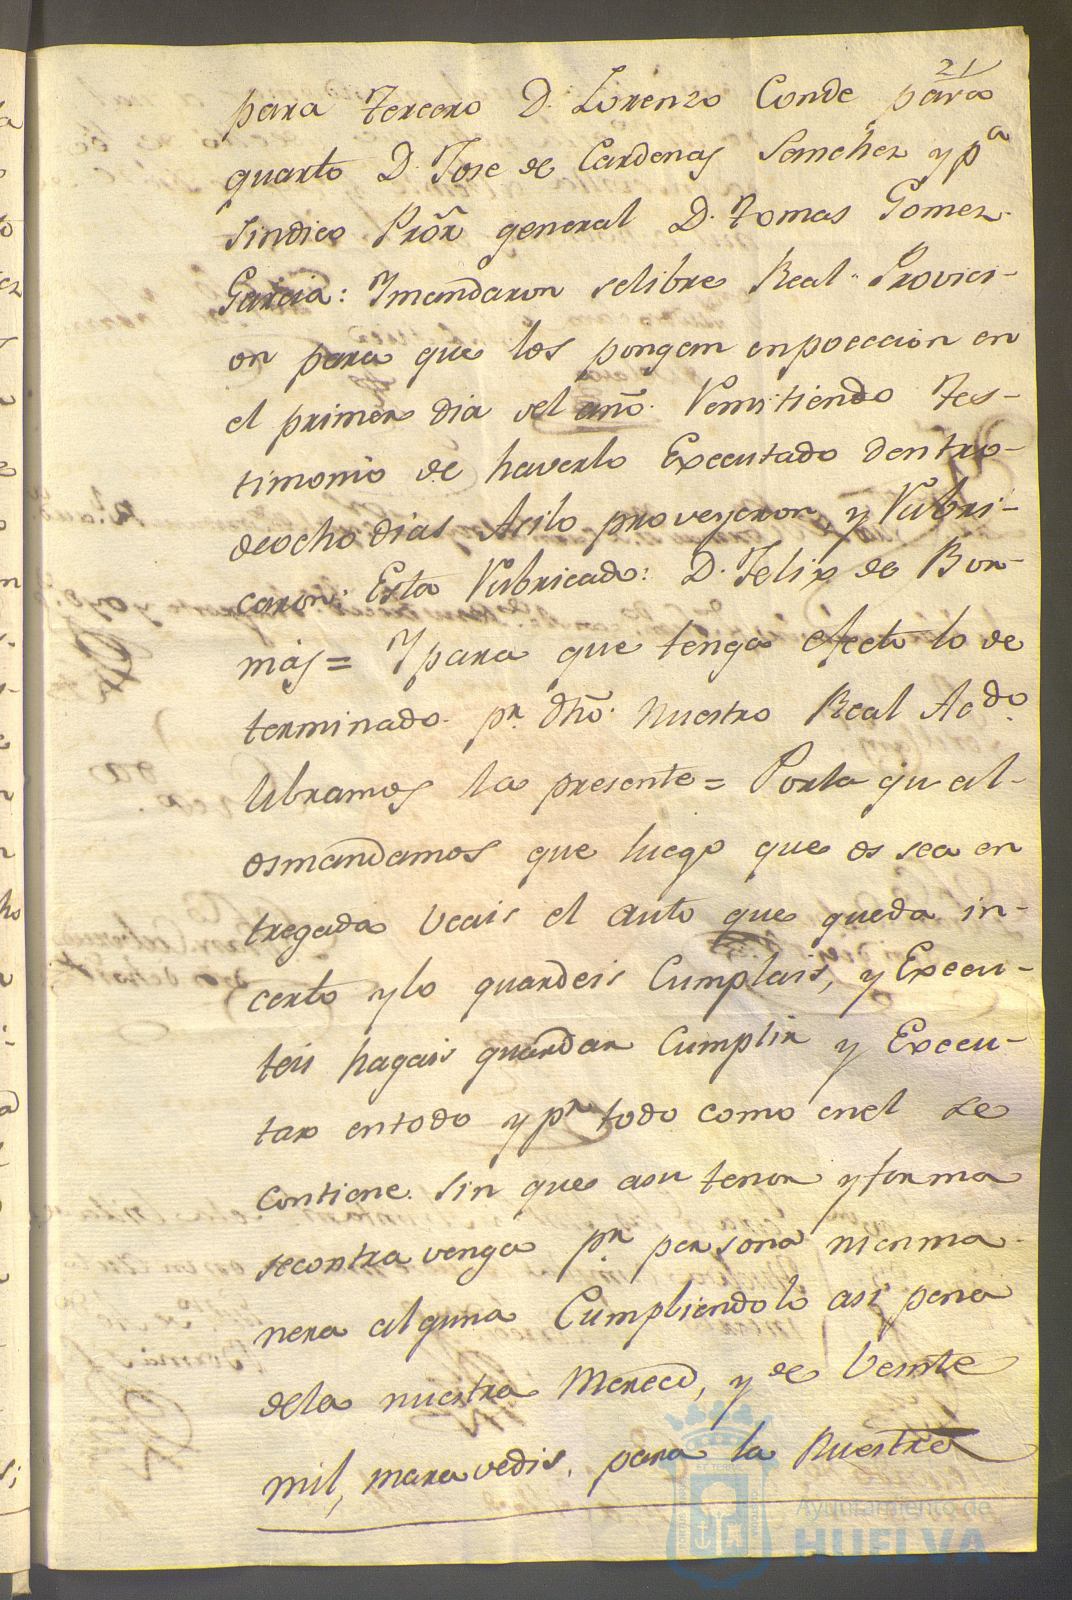 21
para tercero D. Lorenzo Conde para
quarto D. Jose de Cardenas Sanchez y pª
Sindico Prõr general D. Tomas Gomez
Garcia: Ymandaron selibre Real Provici-
on para que los pongan enpoeccion en
el primer dia del año. Remitiendo tes-
timonio de haverlo Executado dentro-
deocho dias Asilo proveyeron, y Rubri-
caron: Esta Rubricado: D. Felix de Bor-
mas = Ypara que tenga efecto lo de
terminado pr. dho. nuestro Real Acdo.
libramos la presente = Porla qual-
osmandamos que luego que os sea en
tregada veais el auto que queda in-
certo ylo guardeis Cumplais, y Execu-
teis hagais guardar Cumplir y Execu-
tar entodo y pr todo como enel se
contiene. Sin que asu tenor yforma
secontravenga pr. persona nienma-
nera alguna Cumpliendolo asi pena
dela nuestra Merced, y de veinte
mil, maravedis, para la Nuestra
Ayuntamiento de
HUELVA